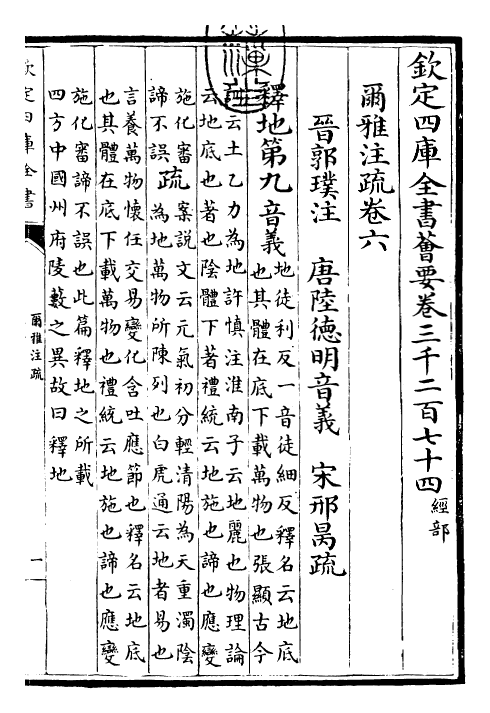 欽定四庫全書薈要卷三千二百七十四 經部
爾雅注疏卷六
晉郭璞注 唐陸德明音義 宋邢昺疏
釋地第九音義
地徒利反一音徒細反釋名云地底
也其體在底下載萬物也張顯古今
云土乙力為地許慎注淮南子云地麗也物理論
云地底也著也陰體下著禮統云地施也諦也應變
施化審
諦不誤
疏
案説文云元氣初分輕清陽為天重濁陰
為地萬物所陳列也白虎通云地者易也
言養萬物懷任交易變化含吐應節也釋名云地底
也其體在底下載萬物也禮統云地施也諦也應變
施化審諦不誤也此篇釋地之所載
四方中國州府陵藪之異故曰釋地
欽定四庫全書
爾雅注疏
一